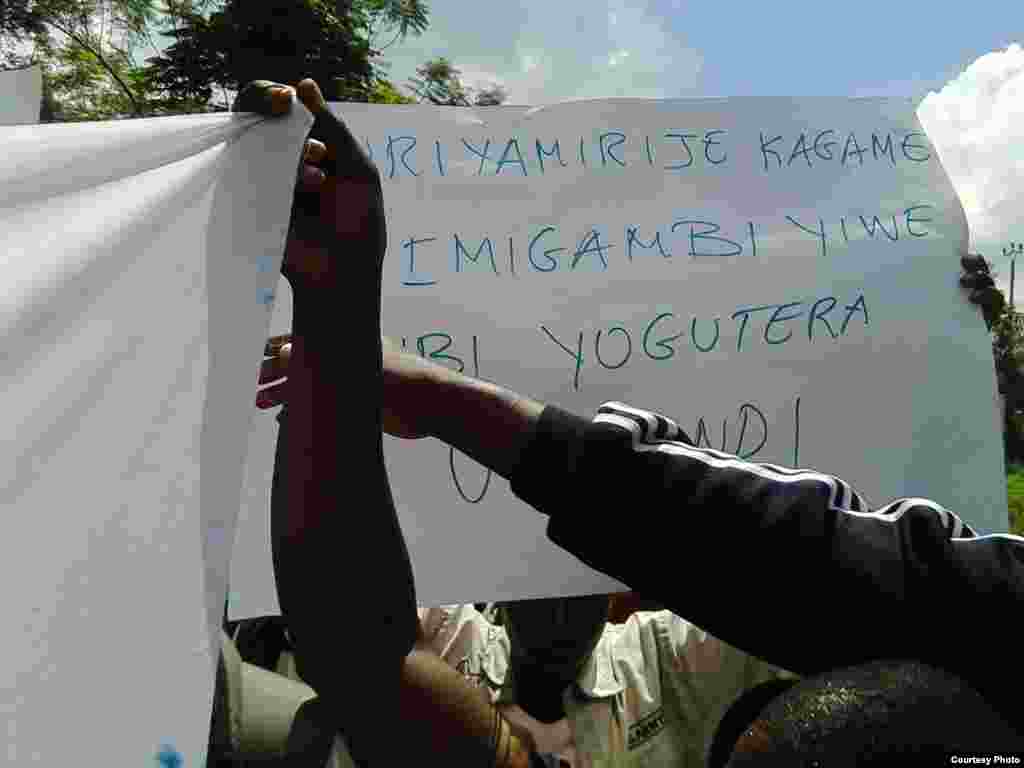 RIYAMIRIJE KAGAME
IMIGAMBI YIWE
BI YOGUTERA
NDI
Courtesy Photo